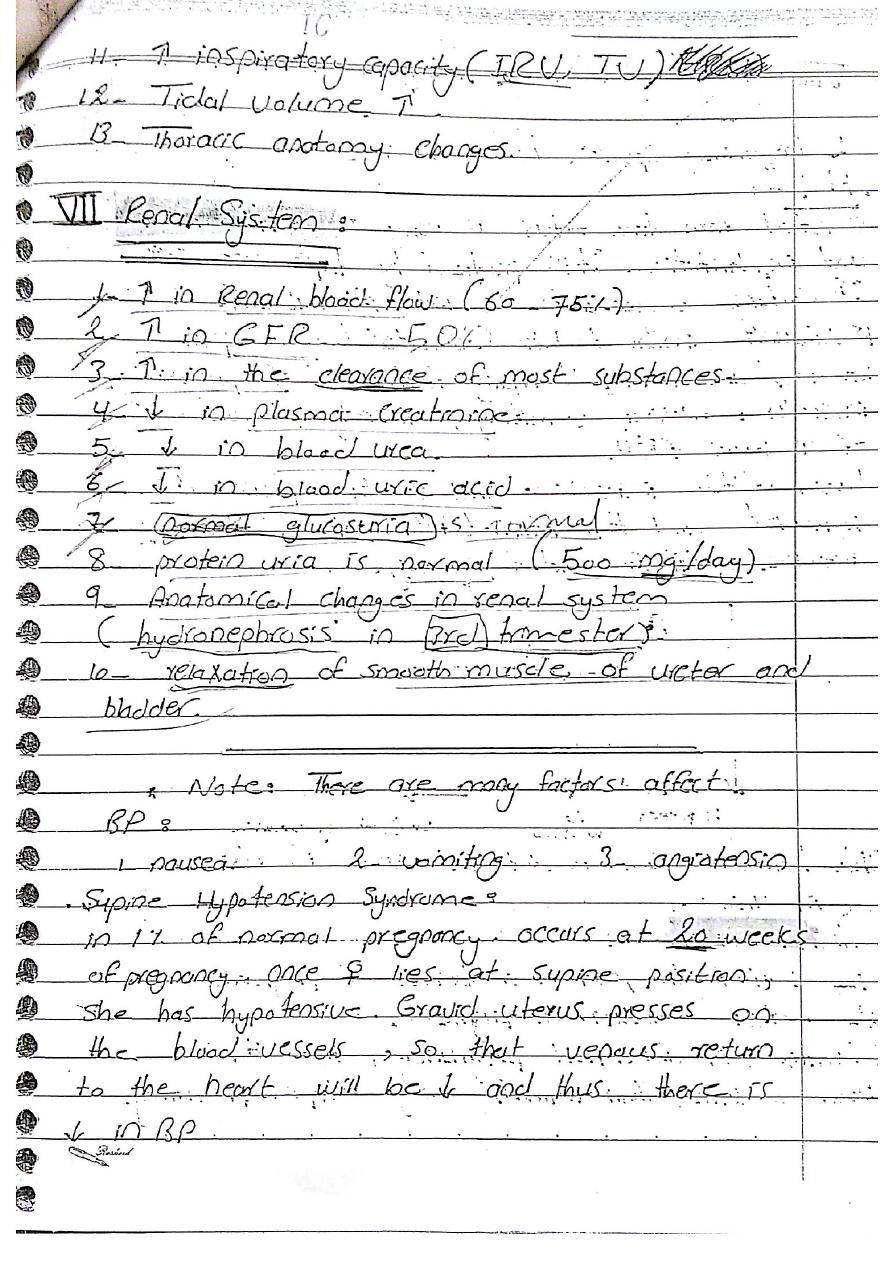 IC
11- ↑ inspiratory capacity (IRV, TV)
12- Tidal volume ↑
13- Thoracic anatomy changes.
VII Renal System :
1- ↑ in Renal blood flow (60 - 75%)
2- ↑ in GFR 50%
3- ↑ in the clearance of most substances.
4- ↓ in plasma creatinine.
5- ↓ in blood urea.
6- ↓ in blood uric acid.
7- (normal glucosuria) is normal
8- protein uria is normal (500 mg/day)
9- Anatomical changes in renal system
(hydronephrosis in 3rd trimester).
10- relaxation of smooth muscle of ureter and
bladder.
* Note: There are many factors affect
BP :
1 nausea 2- vomiting 3- angiotensin
. Supine Hypotension Syndrome :
in 1% of normal pregnancy occurs at 20 weeks
of pregnancy. once ♀ lies at supine position,
she has hypotensive. Gravid uterus presses on
the blood vessels, so that venous return
to the heart will be ↓ and thus there is
↓ in BP